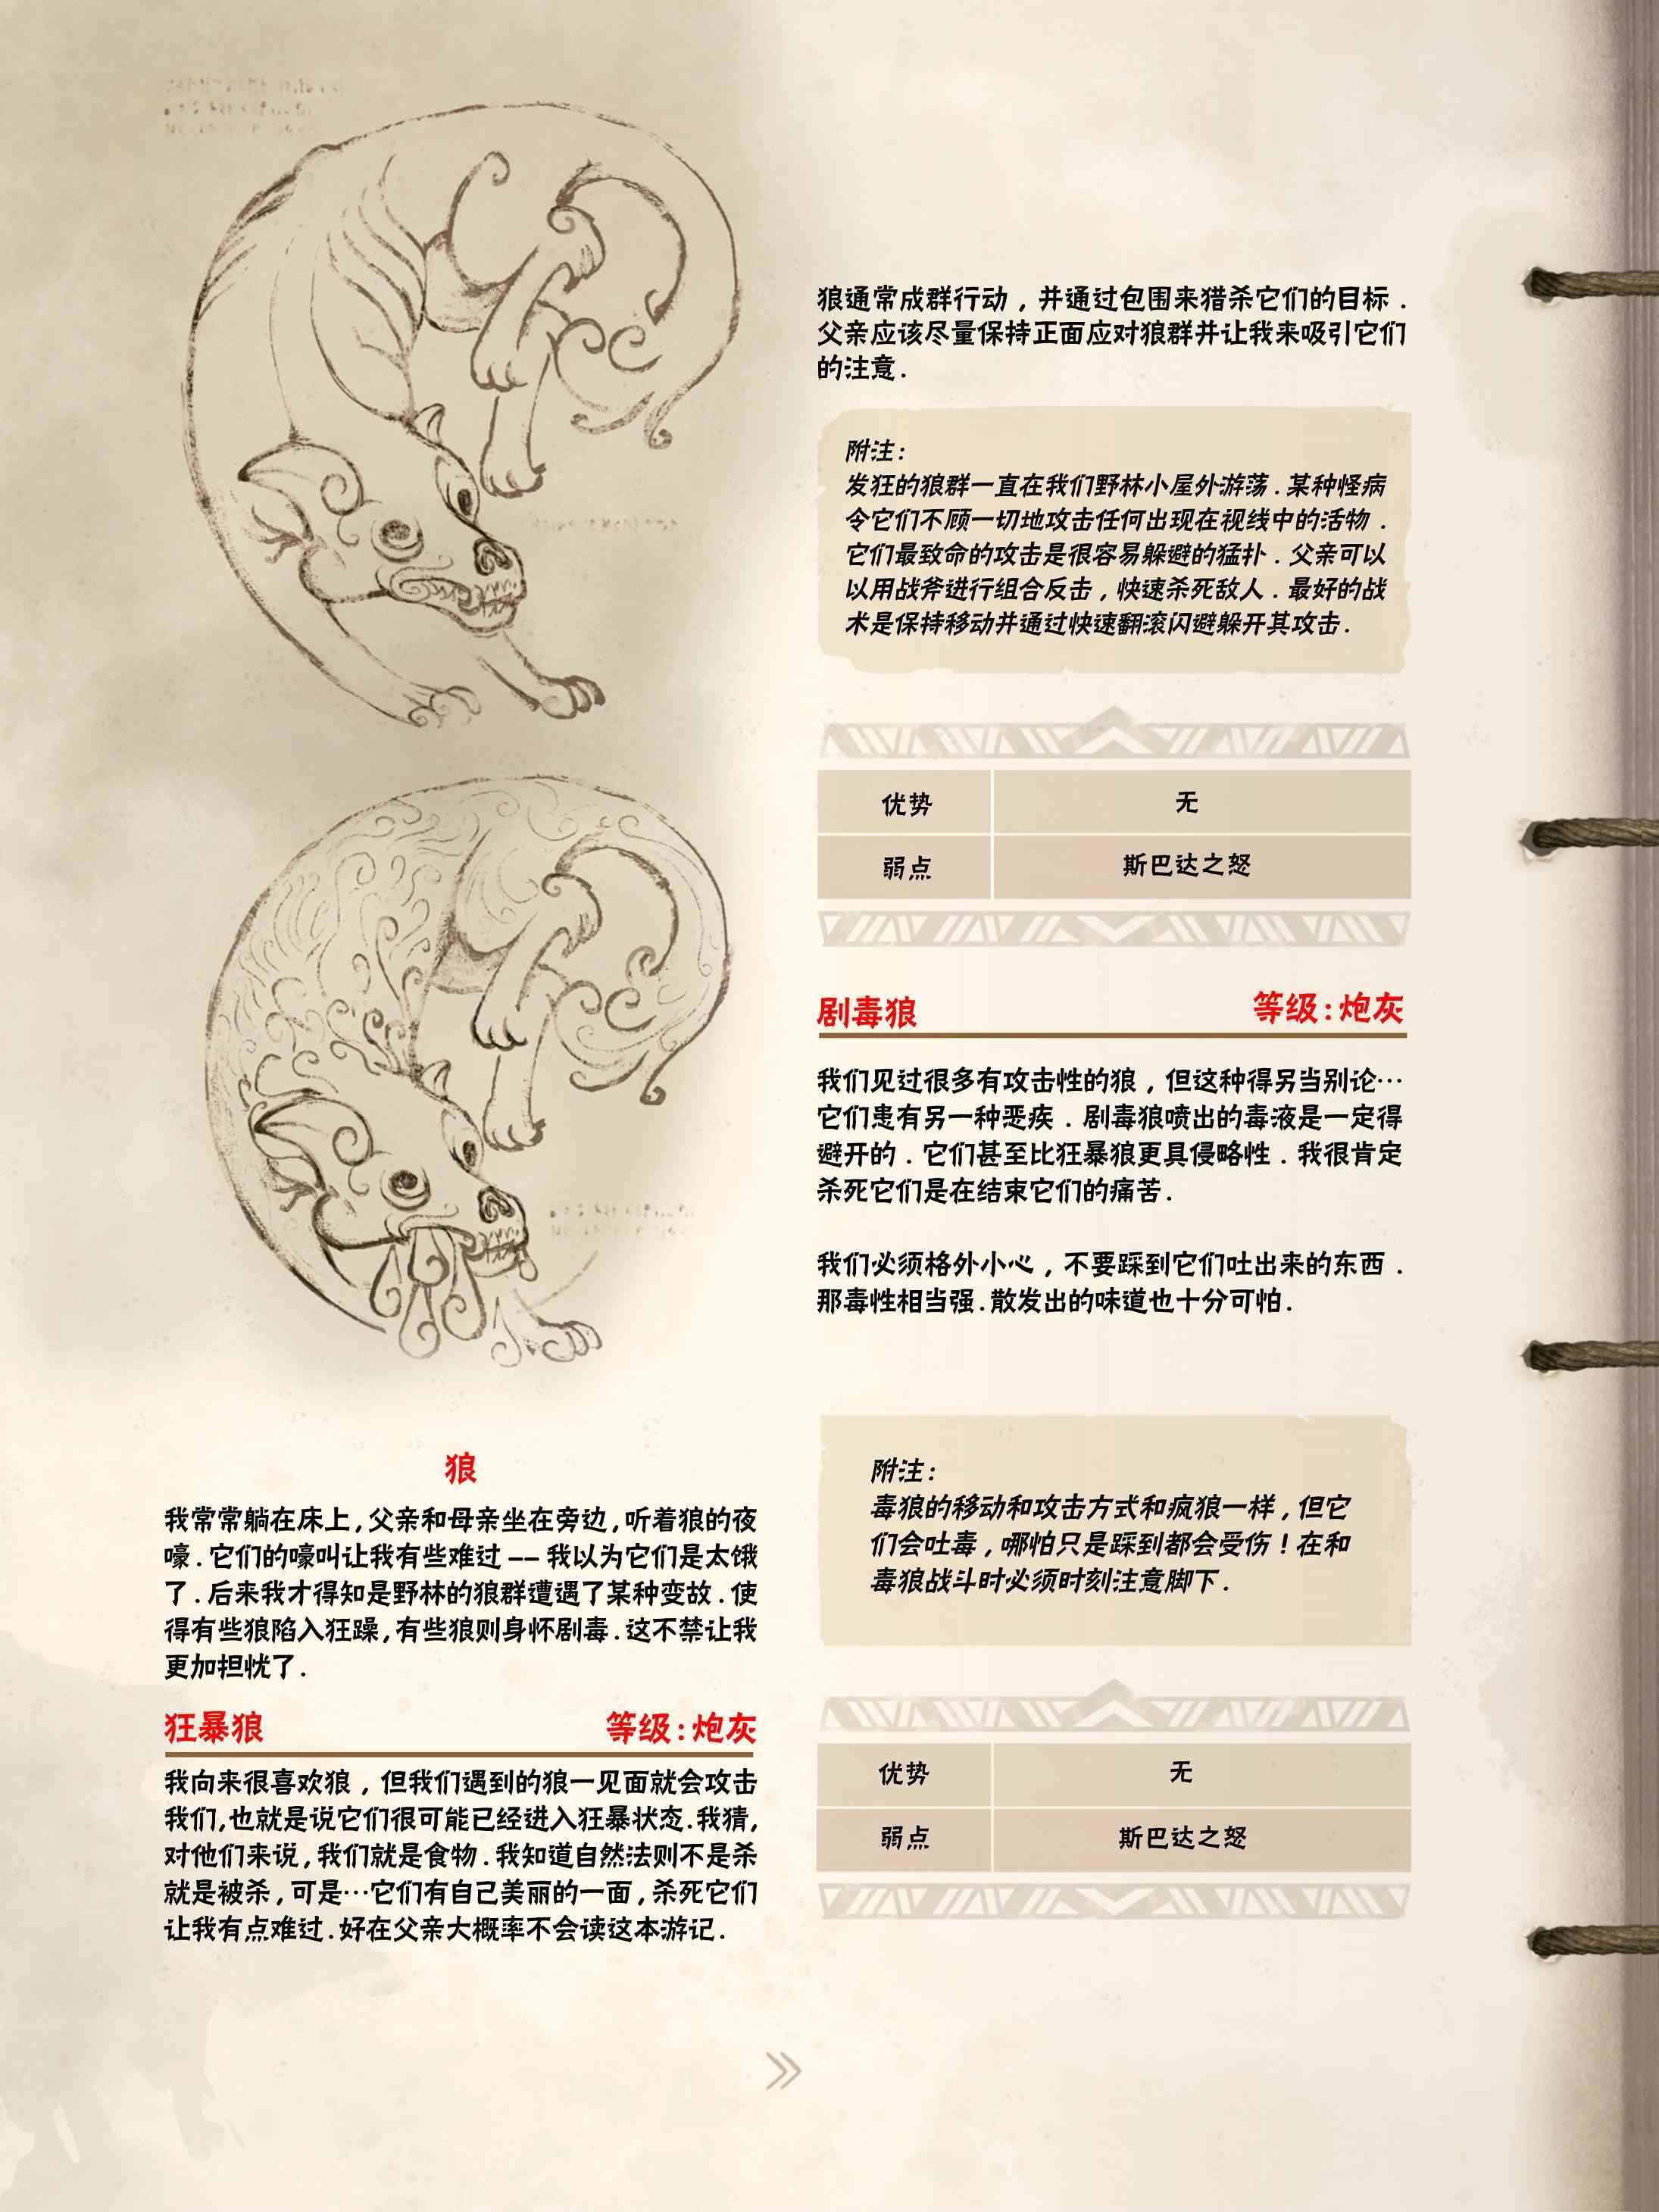 狼
我常常躺在床上,父亲和母亲坐在旁边,听着狼的夜
嚎.它们的嚎叫让我有些难过——我以为它们是太饿
了.后来我才得知是野林的狼群遭遇了某种变故.使
得有些狼陷入狂躁,有些狼则身怀剧毒.这不禁让我
更加担忧了.
狂暴狼 等级:炮灰
我向来很喜欢狼,但我们遇到的狼一见面就会攻击
我们,也就是说它们很可能已经进入狂暴状态.我猜,
对他们来说,我们就是食物.我知道自然法则不是杀
就是被杀,可是…它们有自己美丽的一面,杀死它们
让我有点难过.好在父亲大概率不会读这本游记.
狼通常成群行动,并通过包围来猎杀它们的目标.
父亲应该尽量保持正面应对狼群并让我来吸引它们
的注意.
附注:
发狂的狼群一直在我们野林小屋外游荡.某种怪病
令它们不顾一切地攻击任何出现在视线中的活物.
它们最致命的攻击是很容易躲避的猛扑.父亲可以
以用战斧进行组合反击,快速杀死敌人.最好的战
术是保持移动并通过快速翻滚闪避躲开其攻击.
优势 无
弱点 斯巴达之怒
剧毒狼 等级:炮灰
我们见过很多有攻击性的狼,但这种得另当别论…
它们患有另一种恶疾.剧毒狼喷出的毒液是一定得
避开的.它们甚至比狂暴狼更具侵略性.我很肯定
杀死它们是在结束它们的痛苦.
我们必须格外小心,不要踩到它们吐出来的东西.
那毒性相当强.散发出的味道也十分可怕.
附注:
毒狼的移动和攻击方式和疯狼一样,但它
们会吐毒,哪怕只是踩到都会受伤!在和
毒狼战斗时必须时刻注意脚下.
优势 无
弱点 斯巴达之怒